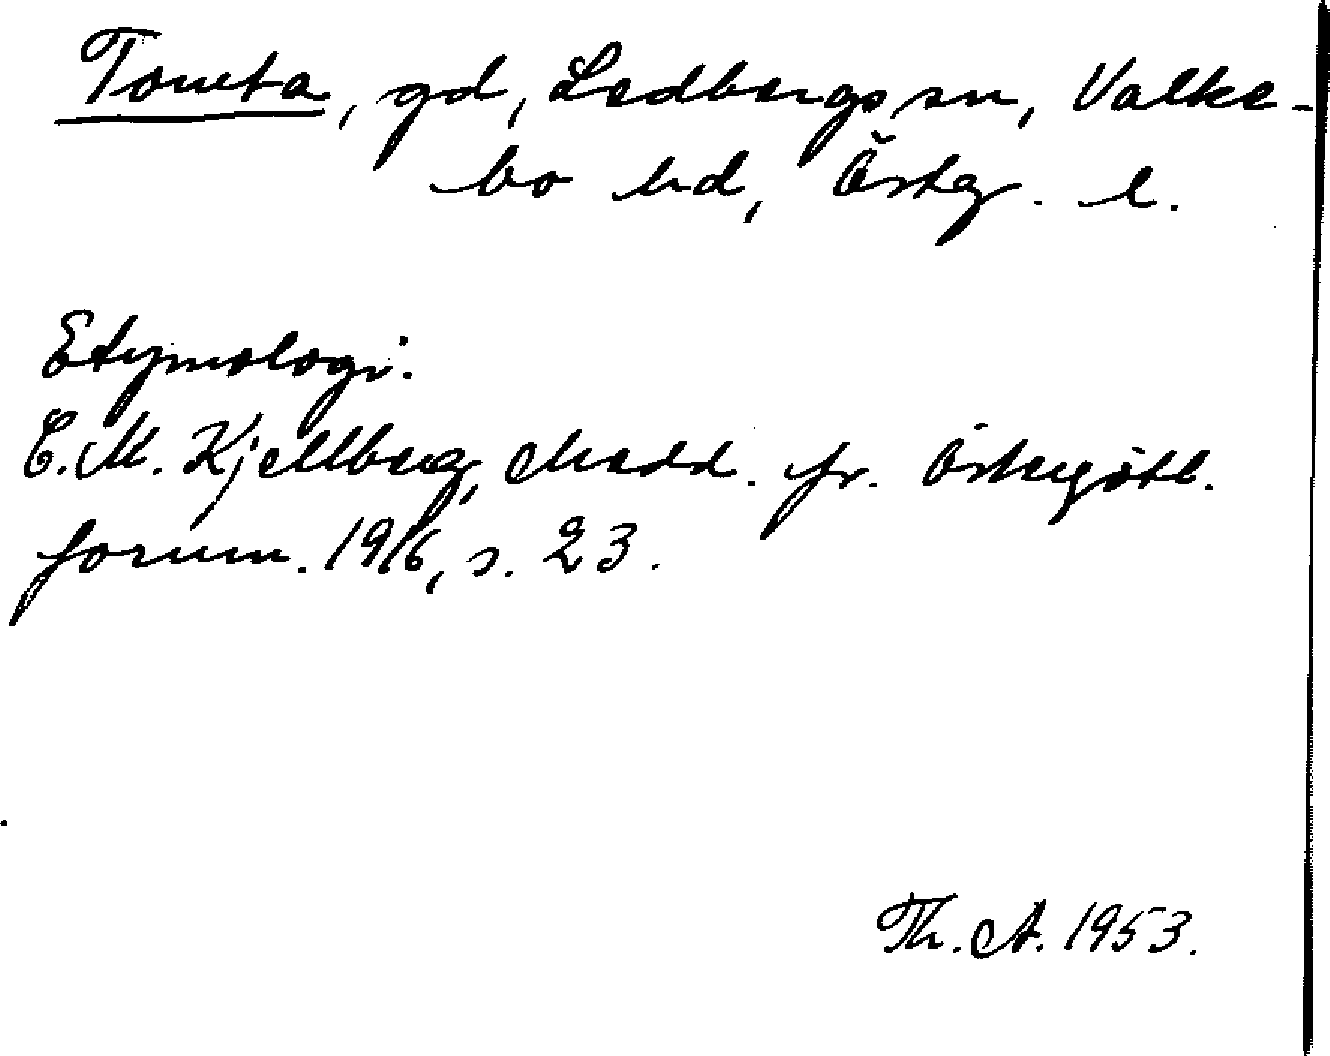 Tomta, gd, Ledbergs sn, Valke-
bo hd, Östg. l.
Etymologi:
C. M. Kjellberg, Medd. fr. Östergötl.
fornm. 1916, s. 23.
Th. A. 1953.